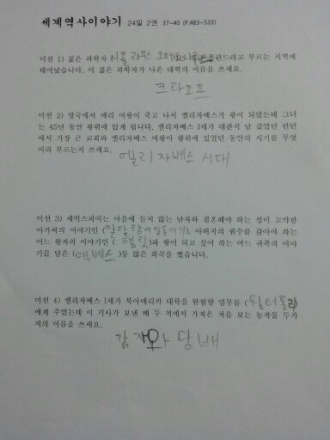 세계역사이야기 24일 2권 37-40 (P.483-533)
미션 1) 젊은 과학자 코페르니쿠스는 폴란드라고 부르는 지역에
태어났습니다. 이 젊은 과학자가 나온 대학의 이름을 쓰세요.
크라코프
미션 2) 영국에서 메리 여왕이 죽고 나서 엘리자베스가 왕이 되었는데 그녀
는 45년 동안 왕위에 있게 됩니다. 엘리자베스 1세가 대관식 날 걸었던 런던
에서 가장 큰 교회와 엘리자베스 여왕이 왕위에 있었던 동안의 시기를 무엇
이라 부르는지 쓰세요.
엘리자베스 시대
미션 3) 셰익스피어는 마음에 들지 않는 남자와 결혼해야 하는 성미 고약한
아가씨의 이야기인 (말괄량이 길들이기), 아버지의 원수를 갚아야 하는
어느 왕자의 이야기인 (햄릿)과 왕이 되고 싶어 하는 어느 귀족의 이야
기를 담은 (맥베스)등 많은 희곡을 썼습니다.
미션 4) 엘리자베스 1세가 북아메리카 대륙을 탐험할 임무를 (월터 롤리)
에게 주었는데 이 기사가 보낸 배 두 척에서 가져온 처음 보는 농작물 두가
지의 이름을 쓰세요.
감자와 담배